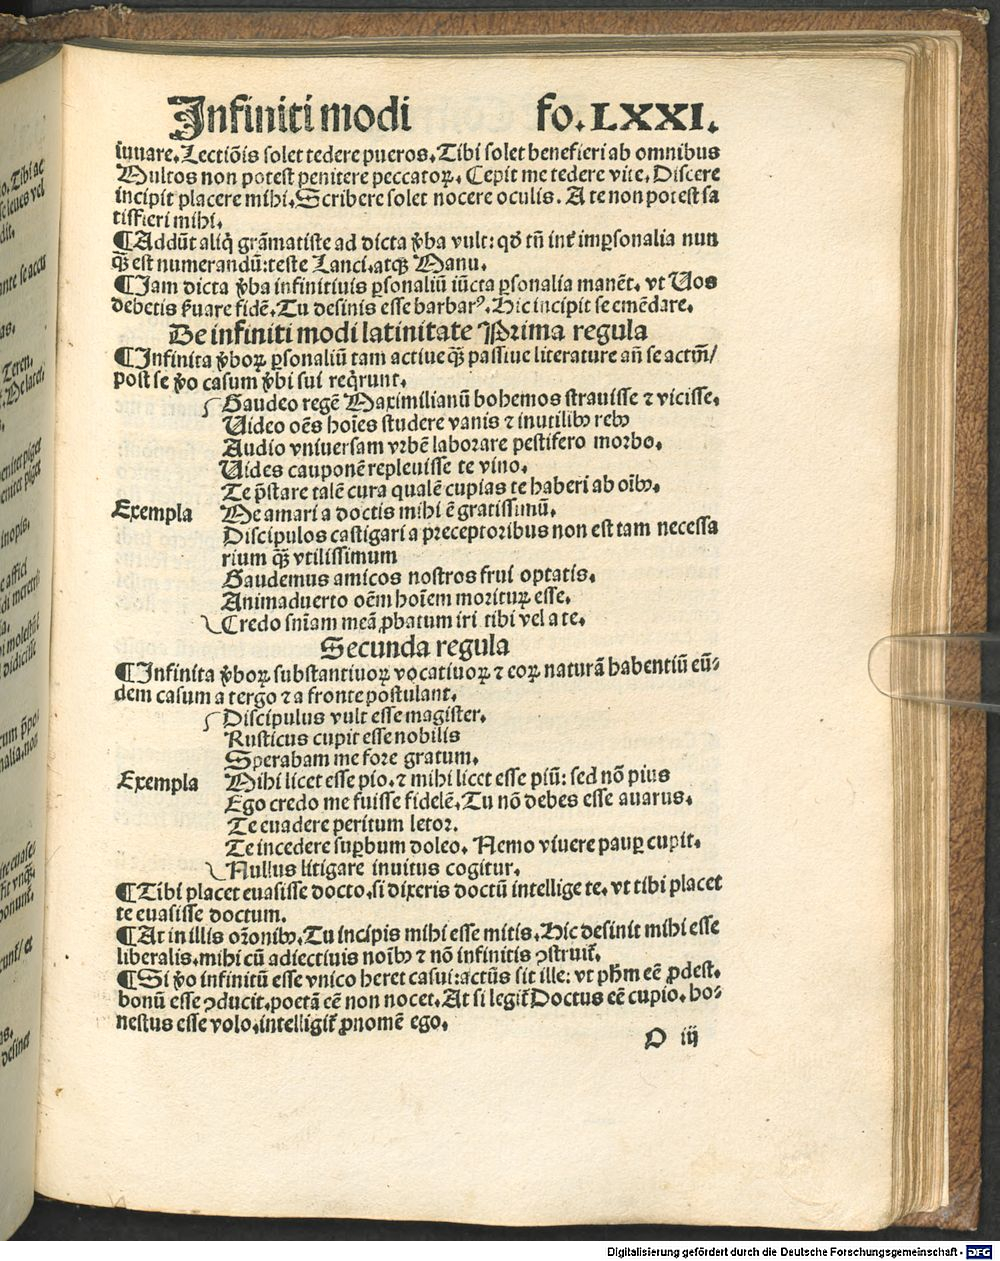 Infiniti modi fo. LXXI.
iuuare. Lectiōis solet tedere pueros. Tibi solet benefieri ab omnibus
Multos non potest penitere peccatoꝝ. Cepit me tedere vite. Discere
incipit placere mihi. Scribere solet nocere oculis. A te non potest sa
tisfieri mihi.
¶ Addūt aliq̇ grāmatiste ad dicta ꝟba vult: qđ tñ inť imꝑsonalia nun
q̄ꝫ est numerandū: teste Lanci. atqꝫ Manu.
¶ Jam dicta ꝟba infinitiuis ꝑsonaliū iūcta ꝑsonalia manēt. vt Uos
debetis ẜuare fidē. Tu desinis esse barbarꝰ. Hic incipit se emēdare.
De infiniti modi latinitate Prima regula
¶ Infinita ꝟboꝝ ꝑsonaliū tam actiue q̄ꝫ passiue literature añ se actm̄/
post se ꝟo casum ꝟbi sui reqͥrunt.
Gaudeo regē Maximilianū bohemos strauisse ⁊ vicisse.
Uideo oēs hoīes studere vanis ⁊ inutilibꝫ rebꝫ
Audio vniuersam vrbē laborare pestifero morbo.
Uides cauponē repleuisse te vino.
Te p̄stare talē cura qualē cupias te haberi ab oībꝫ.
Exempla Me amari a doctis mihi ē gratissimū.
Discipulos castigari a preceptoribus non est tam necessa
rium q̄ꝫ vtilissimum
Gaudemus amicos nostros frui optatis.
Animaduerto oēm hoīem morituꝝ esse.
Credo sniām meā ꝓbatum iri tibi vel a te.
Secunda regula
¶ Infinita ꝟboꝝ substantiuoꝝ vocatiuoꝝ ⁊ eoꝝ naturā habentiū eū⸗
dem casum a tergo ⁊ a fronte postulant.
Discipulus vult esse magister.
Rusticus cupit esse nobilis
Sperabam me fore gratum.
Exempla Mihi licet esse pio. ⁊ mihi licet esse piū: sed nō pius
Ego credo me fuisse fidelē. Tu nō debes esse auarus.
Te euadere peritum letor.
Te incedere suꝑbum doleo. Nemo viuere pauꝑ cupit.
Nullus litigare inuitus cogitur.
¶ Tibi placet euasisse docto. si dixeris doctū intellige te. vt tibi placet
te euasisse doctum.
¶ At in illis orōnibꝫ. Tu incipis mihi esse mitis. Hic desinit mihi esse
liberalis. mihi cū adiectiuis noībꝫ ⁊ nō infinitis ꝯstruiť.
¶ Si ꝟo infinitū esse vnico heret casui: actūs sit ille: vt pħm eē ꝓdest.
bonū esse ꝯducit. poetā eē non nocet. At si legiť Doctus eē cupio. ho⸗
nestus esse volo. intelligiť ꝓnomē ego.
O iij
Digitalisierung gefördert durch die Deutsche Forschungsgemeinschaft - DFG